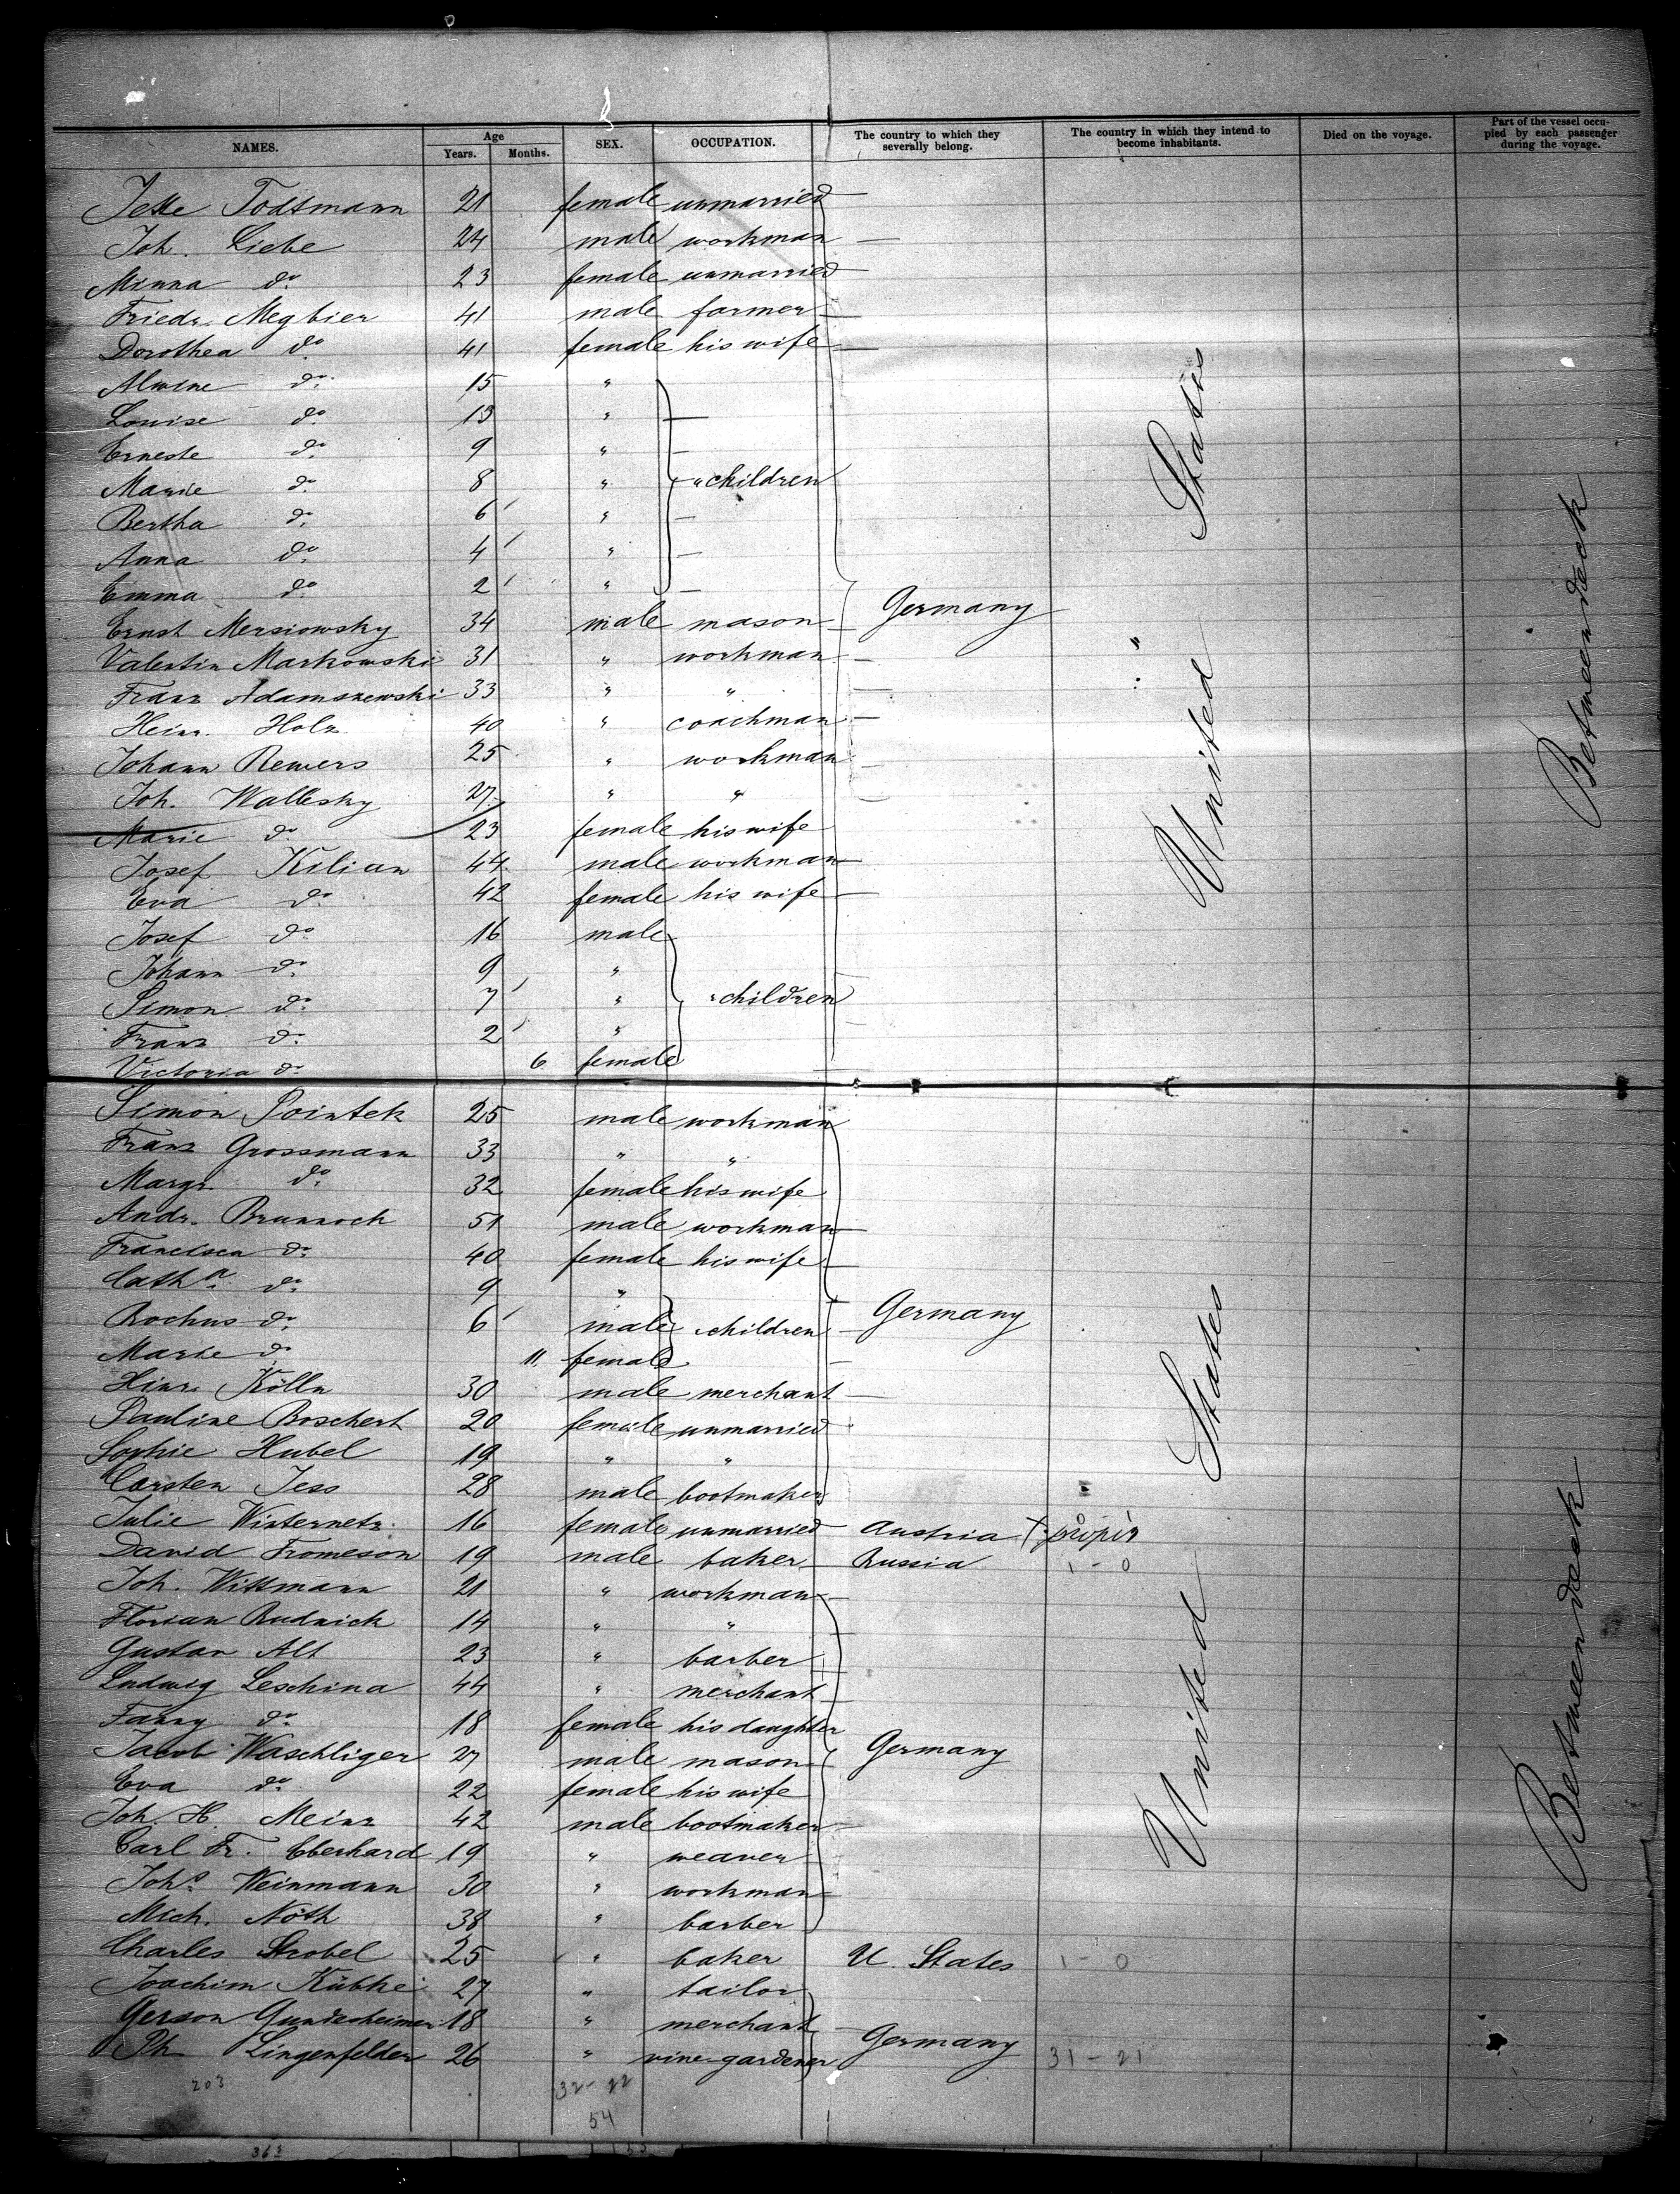 NAMES. Age Years. Months. SEX. OCCUPATION. The country to which they severally belong. The country in which they intend to become inhabitants. Died on the voyage. Part of the vessel occupied by each passenger during the voyage.
Jette Todtmann 21 female unmarried
Joh. Liebe 24 male workman
Minna do 23 female unmarried
Friedr. Megbier 41 male farmer
Dorothea do 41 female his wife
Alwine do 15 "
Louise do 13 "
Erneste do 9 "
Marie do 8 " " children
Bertha do 6 "
Anna do 4 "
Emma do 2 "
Ernst Mersiowsky 34 male mason Germany
Valentin Markowski 31 " workman
Franz Adamszewski 33 " "
Heinr. Holz 40 " coachman
Johann Rewers 25 " workman
Joh. Wallesky 27 " "
Marie do 23 female his wife
Josef Kilian 44 male workman
Eva do 42 female his wife
Josef do 16 male
Johann do 9 "
Simon do 7 " children
Franz do 2 "
Victoria do 6 female
United States
Between deck
Simon Pointek 25 male workman
Franz Grossmann 33 " "
Margr. do 32 female his wife
Andr. Brunnoch 51 male workman
Francisca do 40 female his wife
Catha do 9 "
Rochus do 6 male children Germany
Marie do 11 female
Hinr. Kölln 30 male merchant
Pauline Boschert 20 female unmarried
Sophie Hubel 19 " "
Carsten Jess 28 male bootmaker
Julie Winternetz 16 female unmarried Austria
David Fromeson 19 male baker Russia 1-0
Joh. Wittmann 21 " workman
Florian Rudnick 14 " "
Gustav Alt 23 " barber
Ludwig Leschina 44 " merchant
Fanny do 18 female his daughter
Jacob Waschliger 27 male mason Germany
Eva do 22 female his wife
Joh. H. Meinz 42 male bootmaker
Carl Fr. Eberhard 19 " weaver
Johs Weinmann 30 " workman
Mich. Nöth 38 " barber
Charles Strobel 25 " baker U. States 1-0
Joachim Kübke 27 " tailor
Gerson Gundesheimer 18 " merchant
Ph Lingenfelder 26 " vine-gardener Germany 31-21
United States
Between deck
203 32-22
54
363